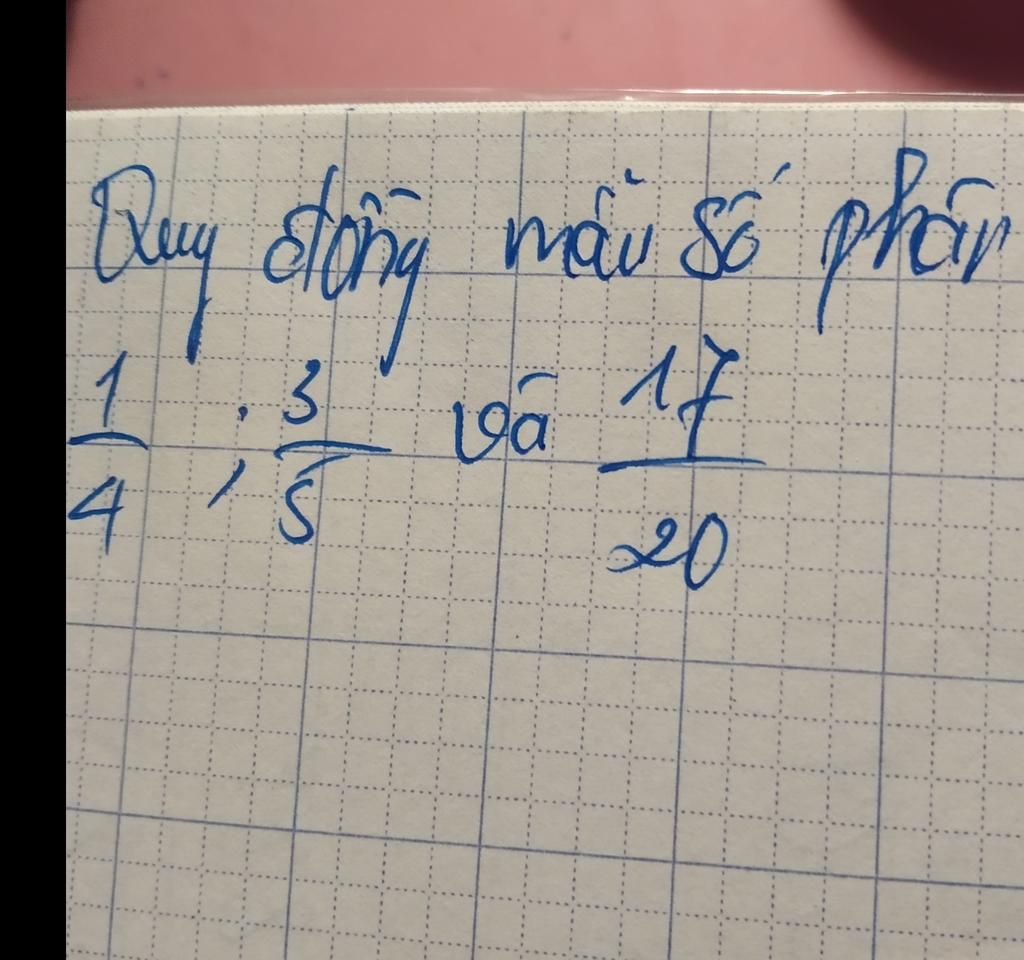 Quy đồng mẫu số phân
1/4 ; 3/5 và 17/20